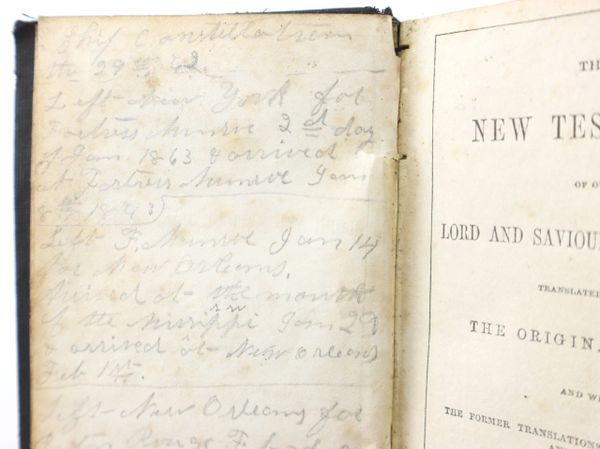 Ship Constillation
the 29th, 62
Left New York for
Fortress Munroe 2d day
of Jan 1863 & arrived
at Fortress Munroe Jan
8th 1863
Left F. Munroe Jan 14
for New Orleans.
Arived at the mouth
of the Missippi Jan 29
& arrived at New Orleans
Feb 1st.
Left New Orleans for
Rouge Feb
TH
NEW TES
OF O
LORD AND SAVIOU
TRANSLATED
THE ORIGIN
AND WI
THE FORMER TRANSLATIONS
AN